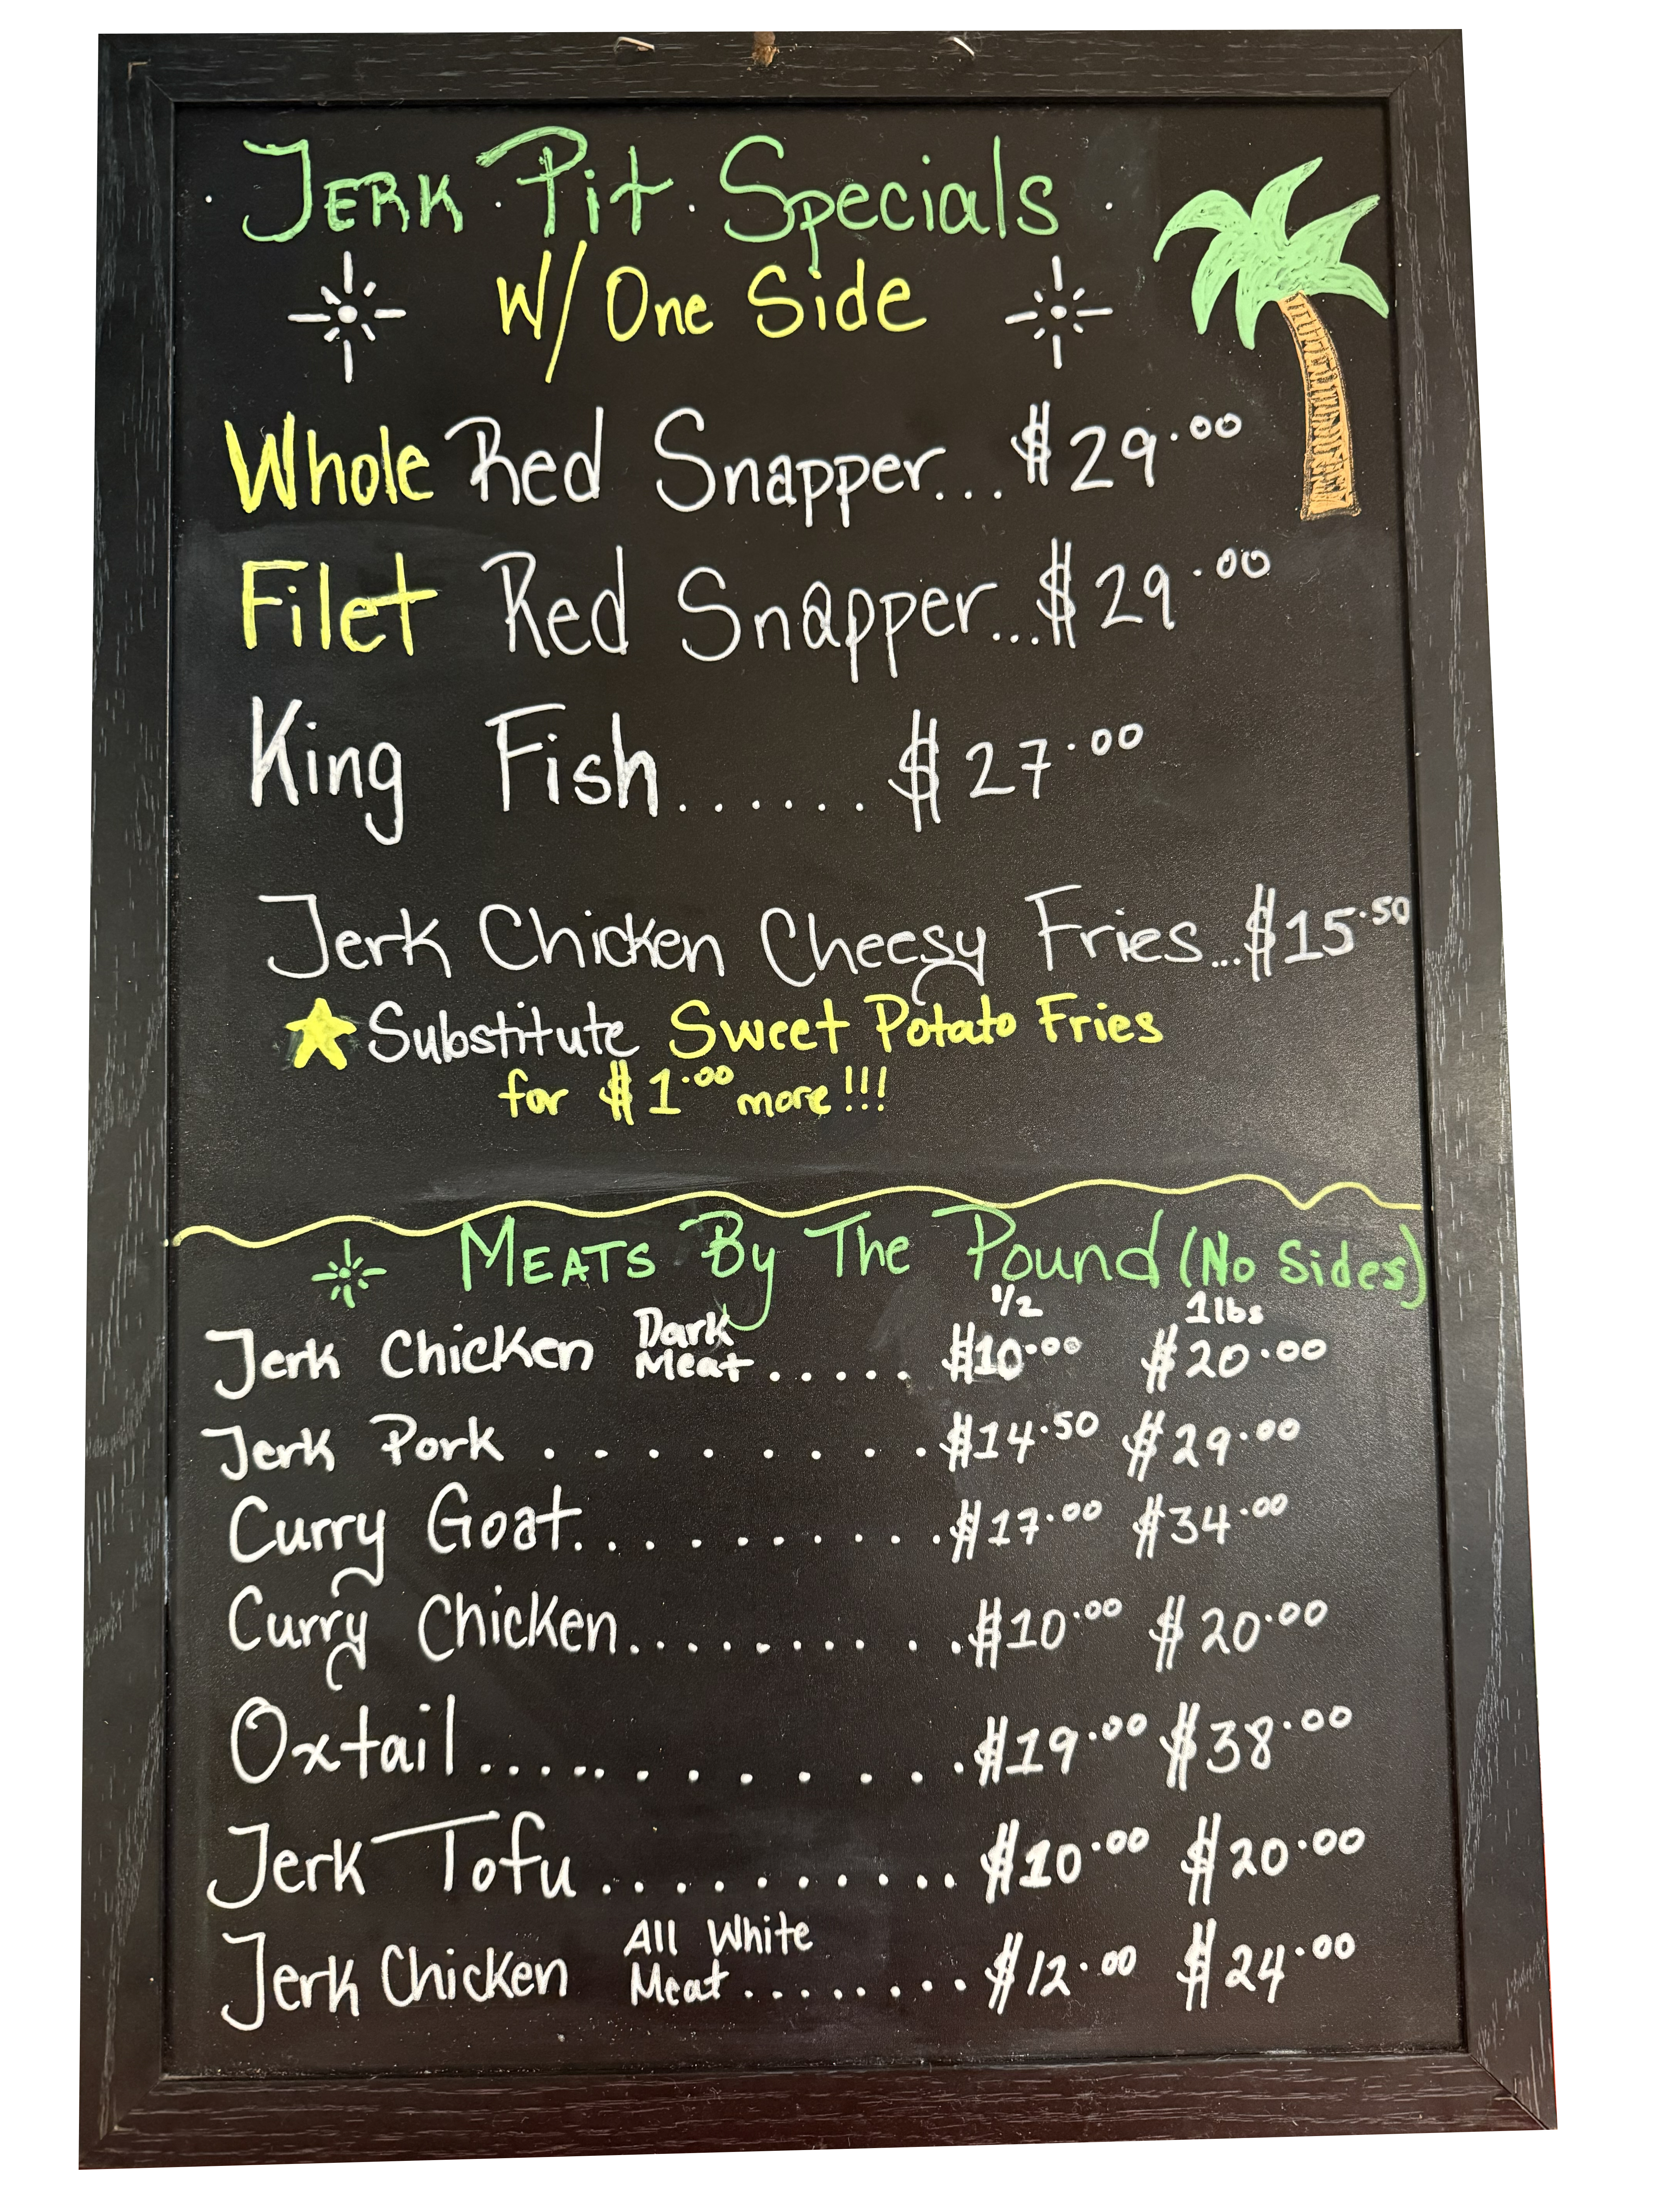 Jerk Pit Specials
W/ One Side
Whole Red Snapper...$29.00
Filet Red Snapper...$29.00
King Fish......$27.00
Jerk Chicken Cheesy Fries...$15.50
Substitute Sweet Potato Fries
for $1.00 more!!!
Meats By The Pound (No Sides)
1/2 1lbs
Jerk Chicken Dark Meat..... $10.00 $20.00
Jerk Pork.........$14.50 $29.00
Curry Goat..........$17.00 $34.00
Curry Chicken..........$10.00 $20.00
Oxtail............$19.00 $38.00
Jerk Tofu..........$10.00 $20.00
Jerk Chicken All White Meat........$12.00 $24.00